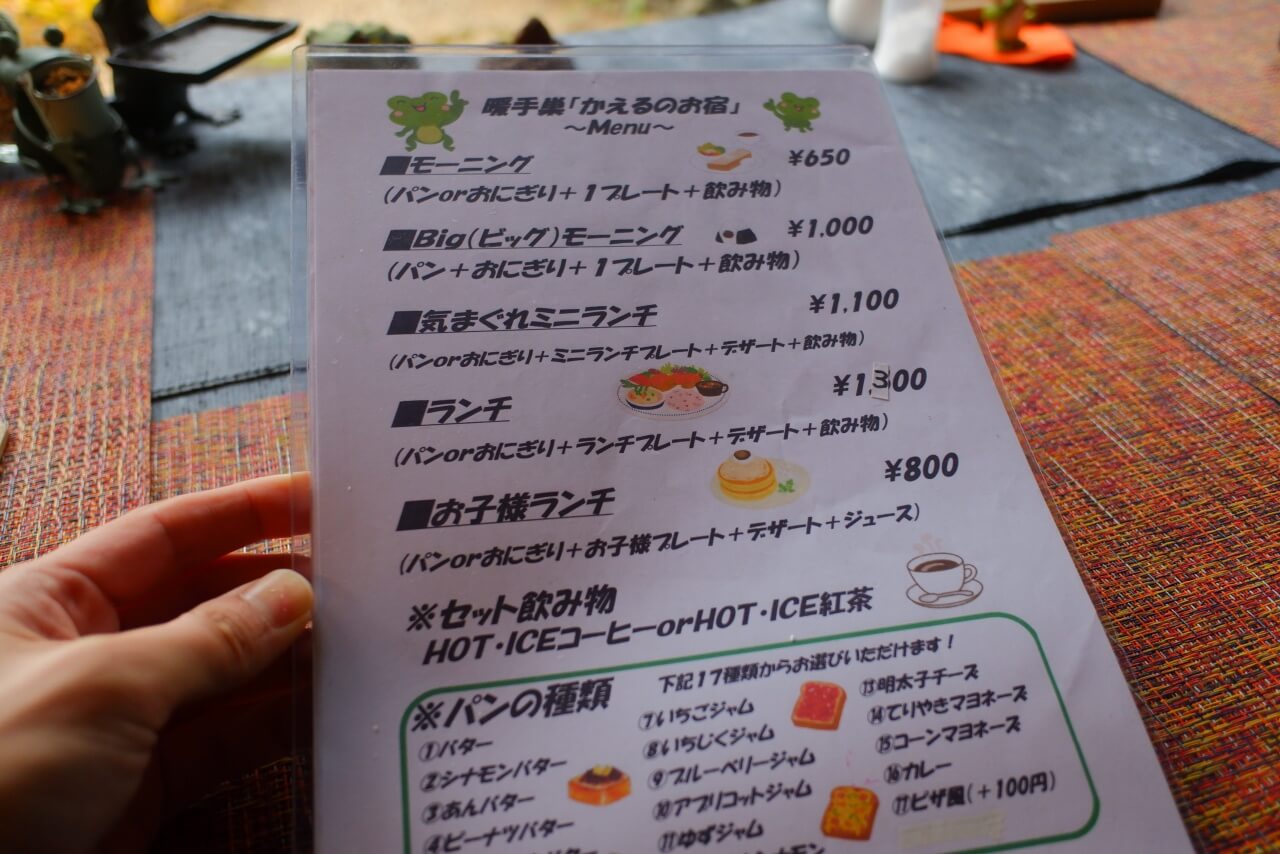 暖手巣「かえるのお宿」
～Menu～
■モーニング ¥650
(パンorおにぎり＋1プレート＋飲み物)
■Big(ビッグ)モーニング ¥1,000
(パン＋おにぎり＋1プレート＋飲み物)
■気まぐれミニランチ ¥1,100
(パンorおにぎり＋ミニランチプレート＋デザート＋飲み物)
■ランチ ¥1,300
(パンorおにぎり＋ランチプレート＋デザート＋飲み物)
■お子様ランチ ¥800
(パンorおにぎり＋お子様プレート＋デザート＋ジュース)
※セット飲み物
HOT・ICEコーヒーorHOT・ICE紅茶
※パンの種類 下記17種類からお選びいただけます！
①バター
②シナモンバター
③あんバター
④ピーナツバター
⑦いちごジャム
⑧いちじくジャム
⑨ブルーベリージャム
⑩アプリコットジャム
⑪ゆずジャム
⑬明太子チーズ
⑭てりやきマヨネーズ
⑮コーンマヨネーズ
⑯カレー
⑰ピザ風(＋100円)